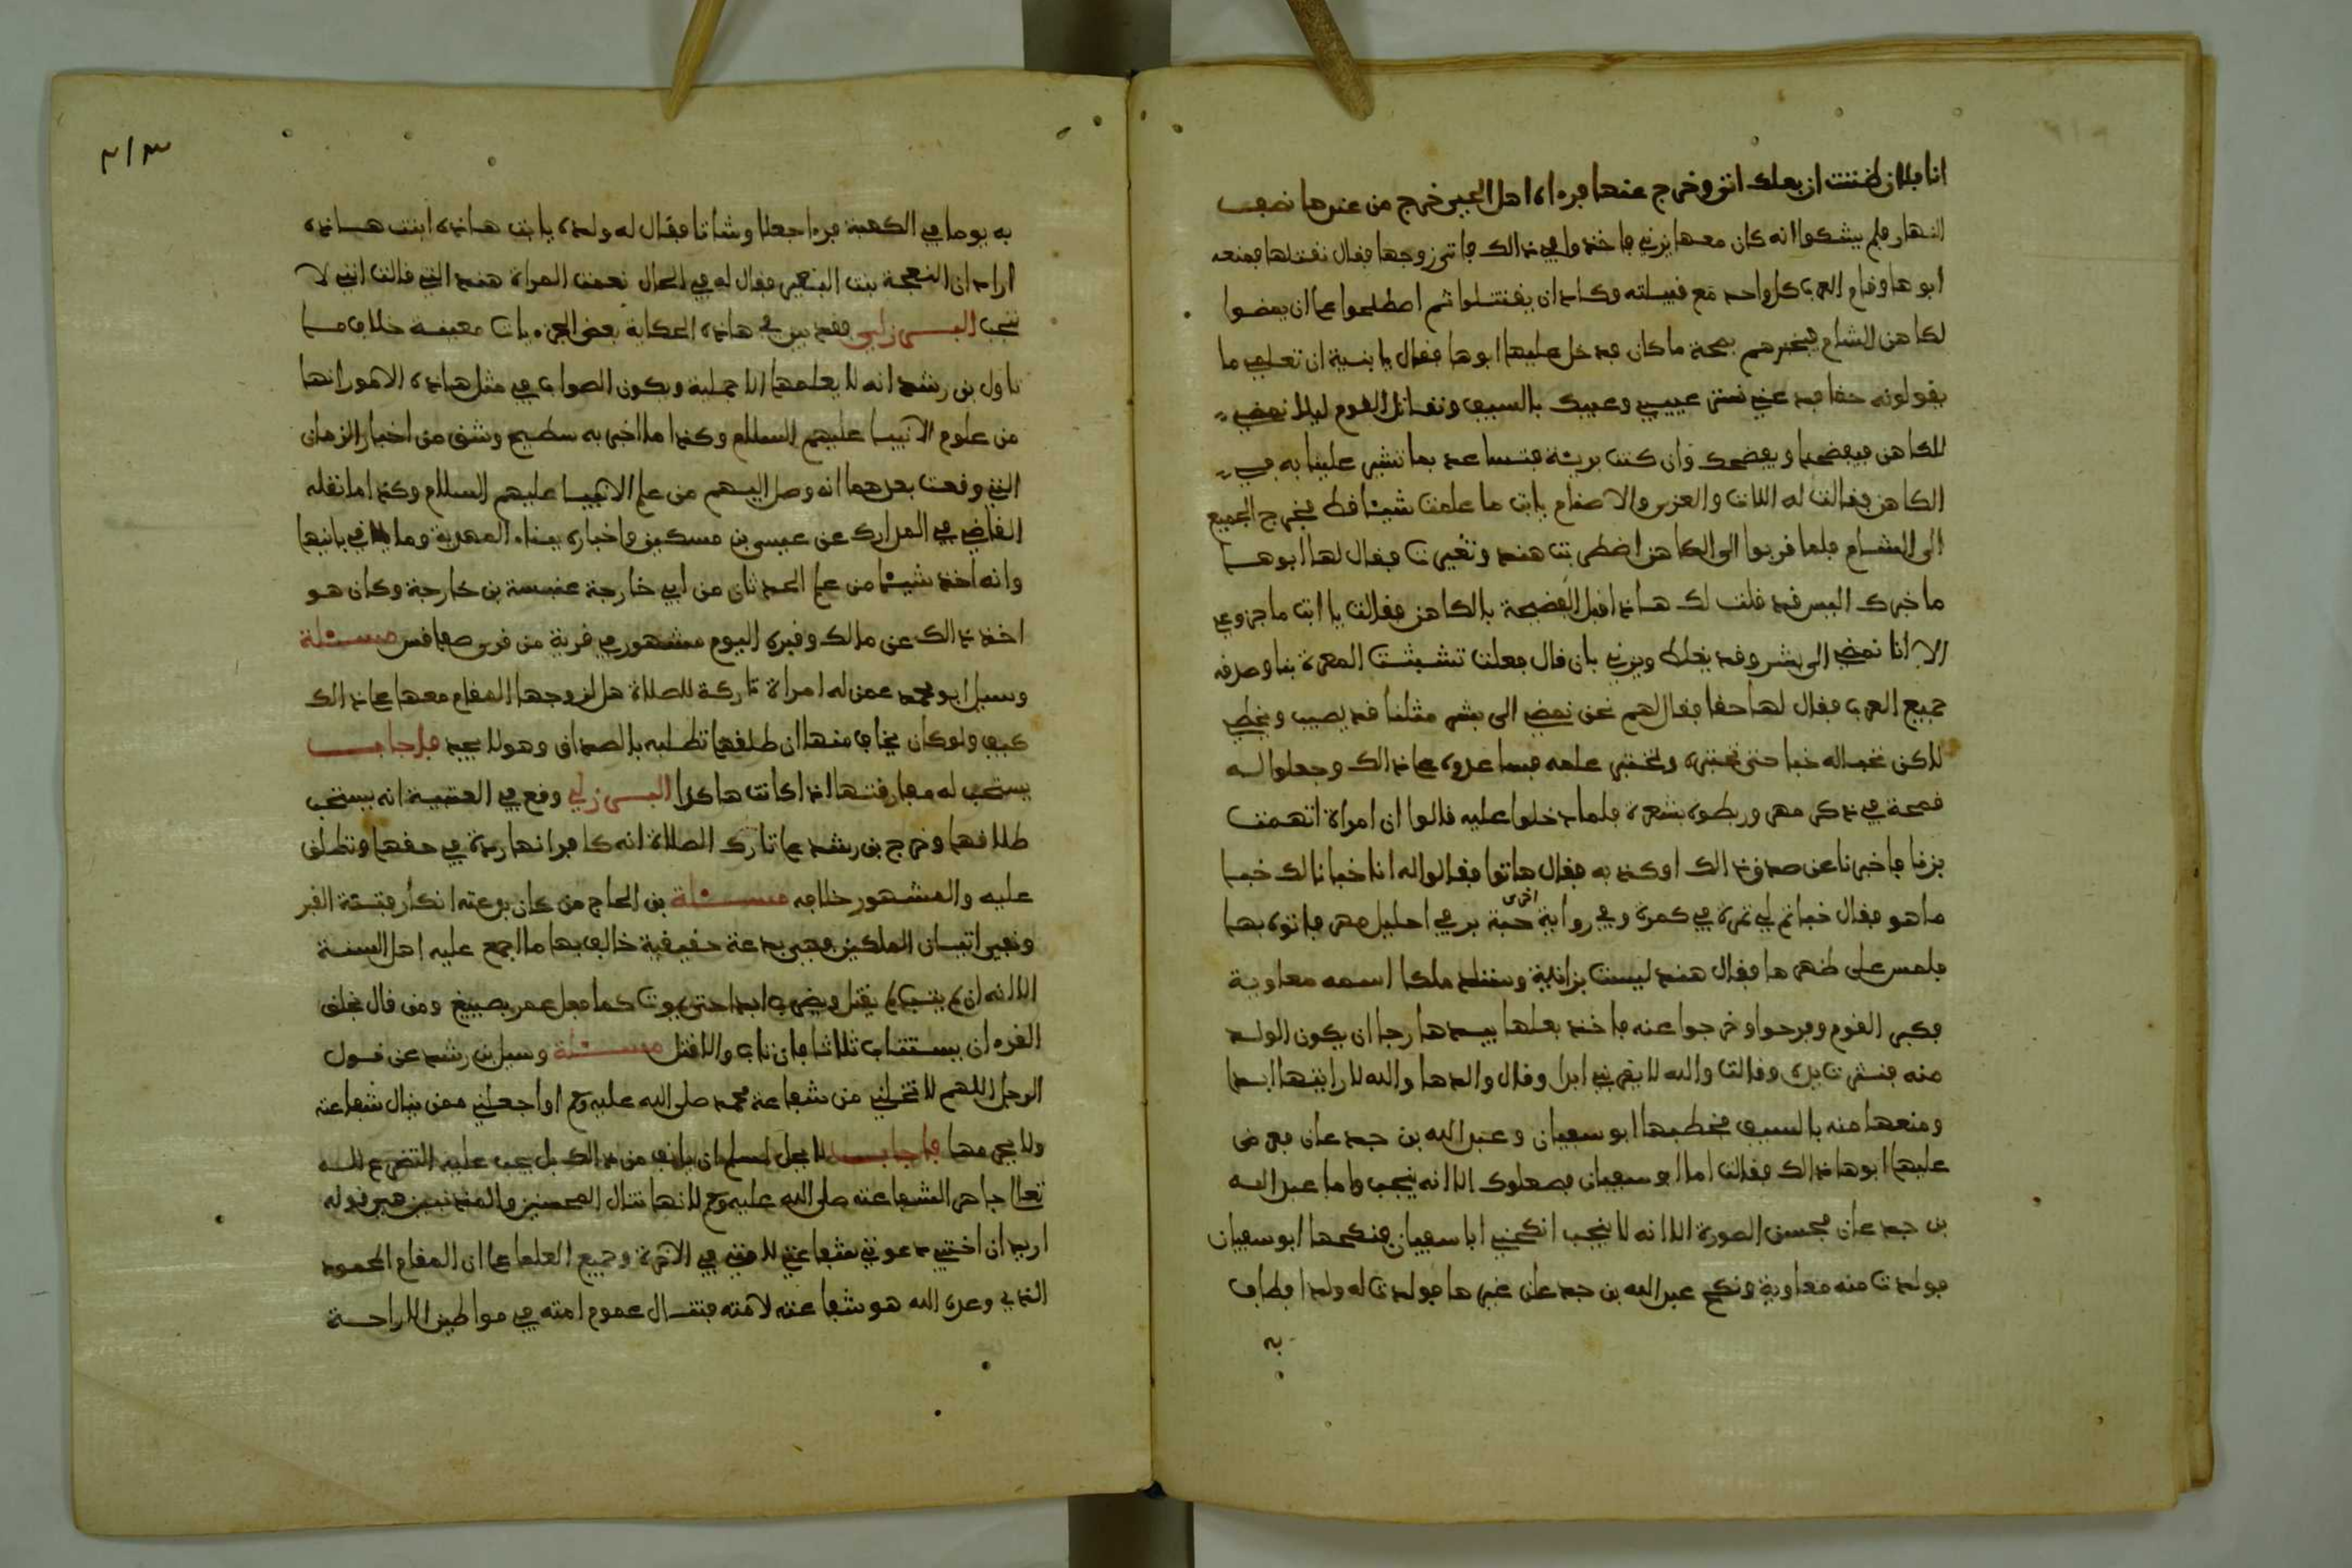 انا فلان ظننت ان بعلك انتى وخرج عنها فرءاه اهل الحي خرج من عندها نصف
النهار فلم يشكوا انه كان معها يزني فاخذوا في ذالك فاتى زوجها فقال نقتلها فمنعه
ابوها وقام العرب كل واحد مع قبيلته وكاد ان يقتتلوا ثم اصطلحوا على ان يمضوا
لكاهن الشام فيخبرهم بصحة ما كان فدخل عليها ابوها فقال يا بنية ان تعلمي ما
يقولونه حقا فدعني نستر عيبي وعيبك بالسيف ونقاتل القوم ليلا نمضي
للكاهن فيفضحنا ويفضحك وان كنت بريئة فنساعد بما نشير علينا به في
الكاهن فقالت له اللات والعزى والاصنام يا ابت ما علمت شيئا قط فخرج الجميع
الى الشام فلما قربوا الى الكاهن اضطربت هند وتغيرت فقال لها ابوها
ما خبرك اليس قد قلت لك هاذا قبل الفضيحة بالكاهن فقالت يا ابت ما جزوعي
الا انا نمضي الى بشر وقد يغلط ويزني بان قال فعلت تشبثت المعرة بنا وصدقه
جميع العرب فقال لها حقا فقال لهم نحن نمضي الى بشر مثلنا قد يصيب ويخطي
لاكن نخبا له خبا حتى نختبره ونختبر علمه فساعدوه على ذالك وجعلوا له
قمحة في ذكر مهر وربطوه بشعرة فلما دخلوا عليه قالوا ان امراة اتهمت
بزنا فاخبرنا عن صدق ذالك او كذبه فقال هاتوا فقالوا له انا خبانا لك خبا
ما هو فقال خباتم لي ثمرة في كمرة وفي رواية اخرى حبة بر في احليل مهر فاتوه بها
فلمس على ظهرها فقال هند ليست بزانية وستلد ملكا اسمه معاوية
فكبر القوم وفرحوا وخرجوا عنه فاخذ بعلها بيدها رجا ان يكون الولد
منه فنترت يدي وقالت والله لا يقربني ابدا وقال والدها والله لا رايتها ابدا
ومنعها منه بالسيف فخطبها ابو سفيان وعبد الله بن جدعان فعرض
عليها ابوها ذالك فقالت اما ابو سفيان فصعلوك الا انه ينجب واما عبد الله
بن جدعان فحسن الصورة الا انه لا ينجب انكحني ابا سفيان فنكحها ابو سفيان
فولدت منه معاوية ونكح عبد الله بن جدعان غيرها فولدت له ولدا فطاف
به
٣١٣
به يوما في الكعبة فرءا جعلا وشاتا فقال له ولده يا ابت هاذه ابنت هاذه
اراد ان النعجة بنت البقر فقال له في الحال نعمت المراة هند التي قالت انني لا
ننجب البرزلي فقد بين في هاذه الحكاية بعض الجزءيات معينة خلاف ما
تاول بن رشد انه لا يعلمها الا جملية ويكون الصواب في مثل هاذه الامور انها
من علوم الانبيا عليهم السلام وكذا ما اخبر به سطيح وشق من اخبار الزمان
التي وقعت بعدهما انه وصل اليهم من علم الانبيا عليهم السلام وكذا ما نقله
القاضي في المدارك عن عيسى بن مسكين واخباره ببناء المهدية وما في بانيها
وانه اخذ شيئا من علم الحدثان من ابي خارجة عنبسة بن خارجة وكان هو
اخذ ذالك عن مالك وقبره اليوم مشهور في قرية من قرى صفاقس مسئلة
وسيل ابو محمد عمن له امراة تاركة للصلاة هل لزوجها المقام معها على ذالك
كيف ولو كان يخاف منها ان طلقها تطلبه بالصداق وهو لا يجد فاجاب
يستحب له مفارقتها اذا كانت هاكذا البرزلي وقع في العتبية انه يستحب
طلاقها وخرج بن رشد على تارك الصلاة انه كافر انها ردة في حقها وتطلق
عليه والمشهور خلافه مسئلة بن الحاج من كان بدعته انكار فتنة القبر
ونفي اتيان الملكين فهي بدعة حقيقية خالف بها ما اجمع عليه اهل السنة
الا انه ان لم يتب لم يقتل ويضرب ابدا حتى يموت كما فعل عمر بصبيغ ومن قال بخلق
القرءان يستتاب ثلاثا فان تاب والا قتل مسئلة وسيل بن رشد عن قول
الرجل اللهم لا تخلني من شفاعة محمد صلى الله عليه وسلم او اجعلني ممن ينال شفاعته
ولا يحرمها فاجاب لا يحل لمسلم ان يانف من ذالك بل يجب عليه التضرع لله
تعالى جاهر الشفاعته صلى الله عليه وسلم لانها تنال المحسنين والمذنبين فهي قوله
اريد ان اختبي دعوتي شفاعتي لامتي في الاخرة وجميع العلما على ان المقام المحمود
الذي وعده الله هو شفاعته لامته فتسال عموم امته في مواطين للراحة